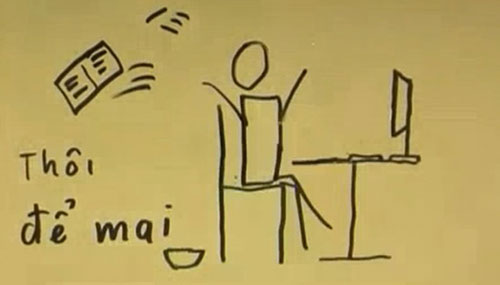 Thôi
để mai